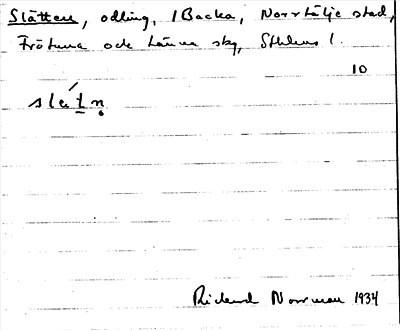 Slåtten, odling, /Backa, Norrtälje stad,
Frötuna och Länna skg, Sthlms l.
10
slátn
Rickard Norrman 1934